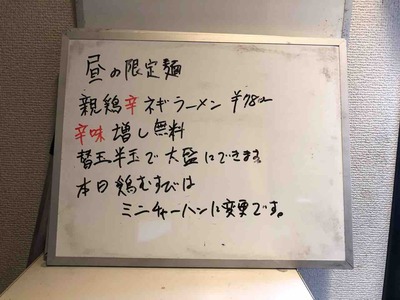 昼の限定麺
親鶏辛ネギラーメン ¥780
辛味増し無料
替玉半玉で大盛にできます
本日鶏むすびは
ミニチャーハンに変更です。